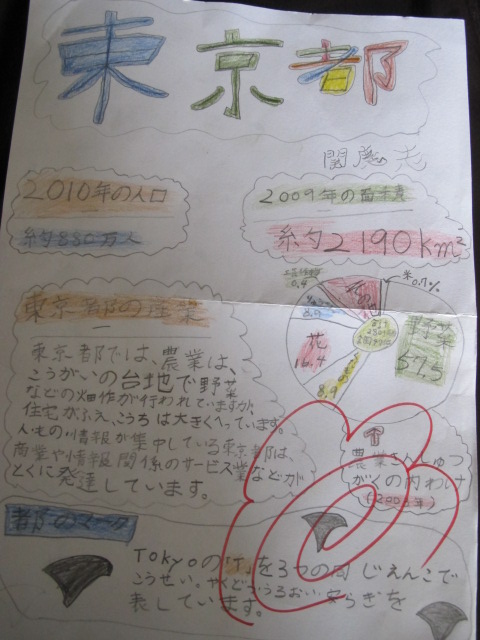 東京都
2010年の人口
約880万人
2009年の面積
約2190km²
東京都の産業
東京都では、農業は、
こうがいの台地で野菜
などの畑作が行われていますが、
住宅がふえ、こうちは大きくへっています。
人もの、情報が集中している東京都は、
商業や情報関係のサービス業などが
とくに発達しています。
米0.7%
野菜
57.5
花
16.4
8.9
0.4
農業さんしゅつ
がくの内わけ
都のマーク
Tokyoの「T」を3つの同じえんこで
こうせい。やくどう、うるおい、安らぎを
表しています。